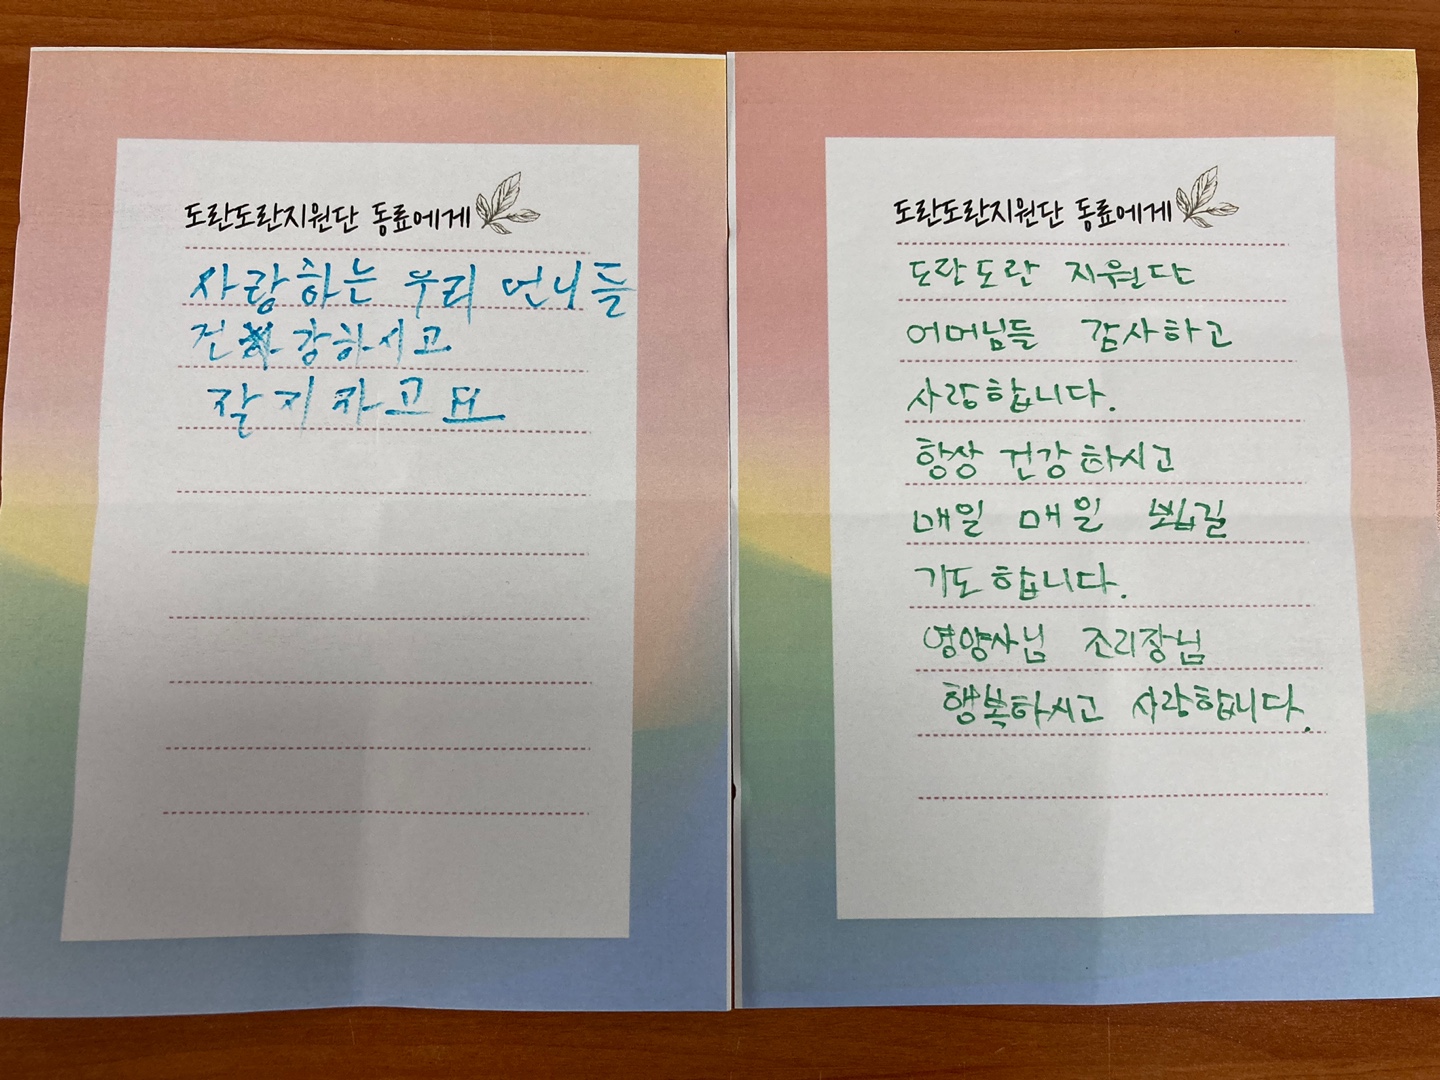 도란도란지원단 동료에게
사랑하는 우리 언니들
건강하시고
잘지자고요
도란도란지원단 동료에게
도란도란 지원단
어머님들 감사하고
사랑합니다.
항상 건강하시고
매일 매일 뵙길
기도합니다.
영양사님 조리장님
행복하시고 사랑합니다.